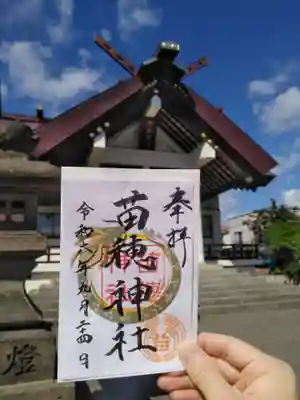 奉拝
苗穂神社
令和六年九月二十四日
燈